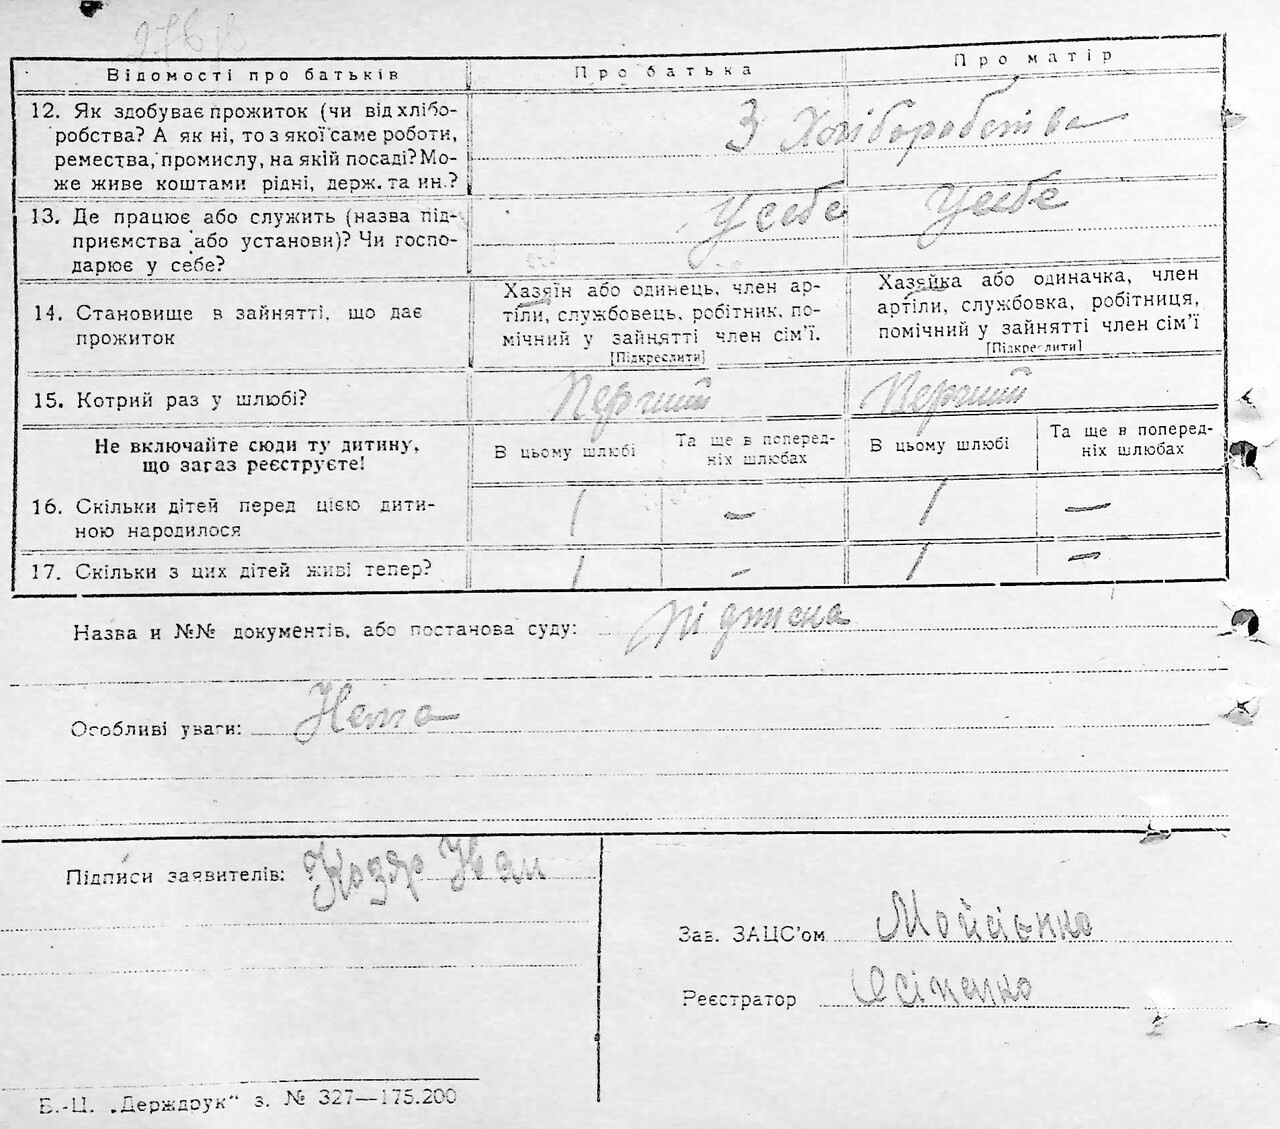 276 зв
Відомості про батьків
Про батька
Про матір
12. Як здобуває прожиток (чи від хлібо-
робства? А як ні, то з якої саме роботи,
ремества, промислу, на якій посаді? Мо-
же живе коштами рідні, держ. та ин.?
З Хліборобства
13. Де працює або служить (назва під-
приємства або установи)? Чи госпо-
дарює у себе?
У себе
У себе
14. Становище в зайнятті, що дає
прожиток
Хазяїн або одинець, член ар-
тіли, службовець, робітник, по-
мічний у зайнятті член сім’ї.
[Підкреслити]
Хазяйка або одиначка, член
артіли, службовка, робітниця,
помічний у зайнятті член сім’ї
[Підкреслити]
15. Котрий раз у шлюбі?
Перший
Перший
Не включайте сюди ту дитину,
що загаз реєструєте!
В цьому шлюбі
Та ще в поперед-
ніх шлюбах
В цьому шлюбі
Та ще в поперед-
ніх шлюбах
16. Скільки дітей перед цією дити-
ною народилося
1
—
1
—
17. Скільки з цих дітей живі тепер?
1
-
1
—
Назва и №№ документів, або постанова суду: Підписка
Особливі уваги: Нема
Підписи заявителів: Козяр Іван
Зав. ЗАЦС’ом Мойсієнко
Реєстратор Осіпенко
Б.-Ц. „Держдрук“ з. № 327—175.200